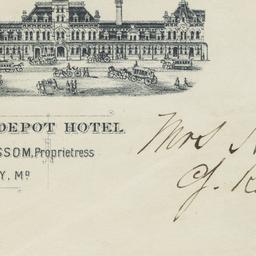 DEPOT HOTEL
SSOM, Proprietress
Y, Mo
Mrs